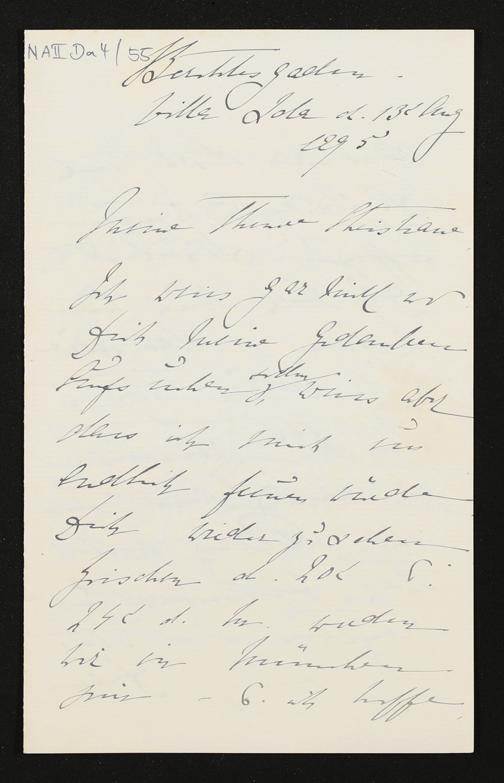 NA II Da 4/55
Berchtesgaden.
Villa Ida d. 13t Aug
1895
Meine Theure Christiane
Ich weis gar nicht wo
Dich meine Gedanken
sollen, weis aber
dass ich mich
endlich freuen würde
Dich wieder zu sehen
Zwischen d. 20t &
24t d. M. werden
wir in München
sein - &. ich hoffe